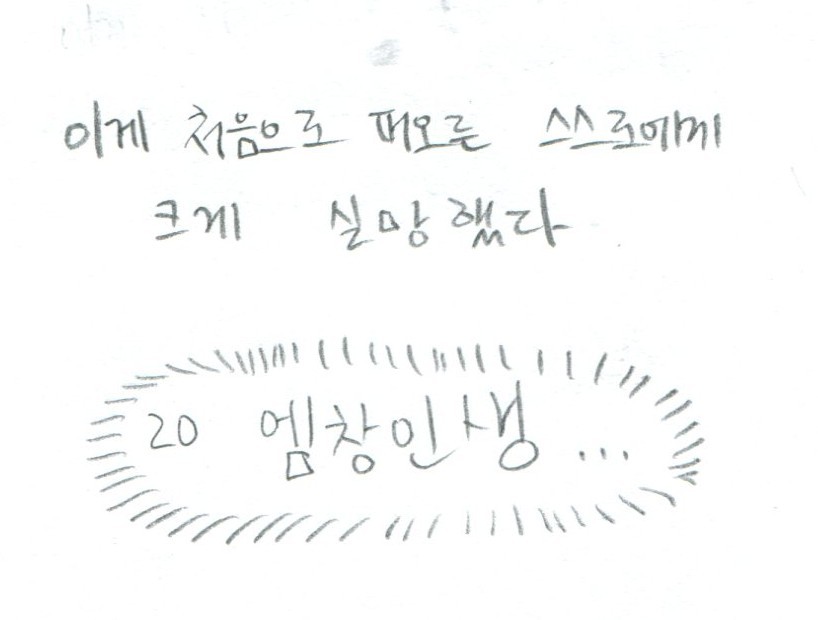 이게 처음으로 떠오른 쓰스로에게
크게 실망했다
20 엠창인생...